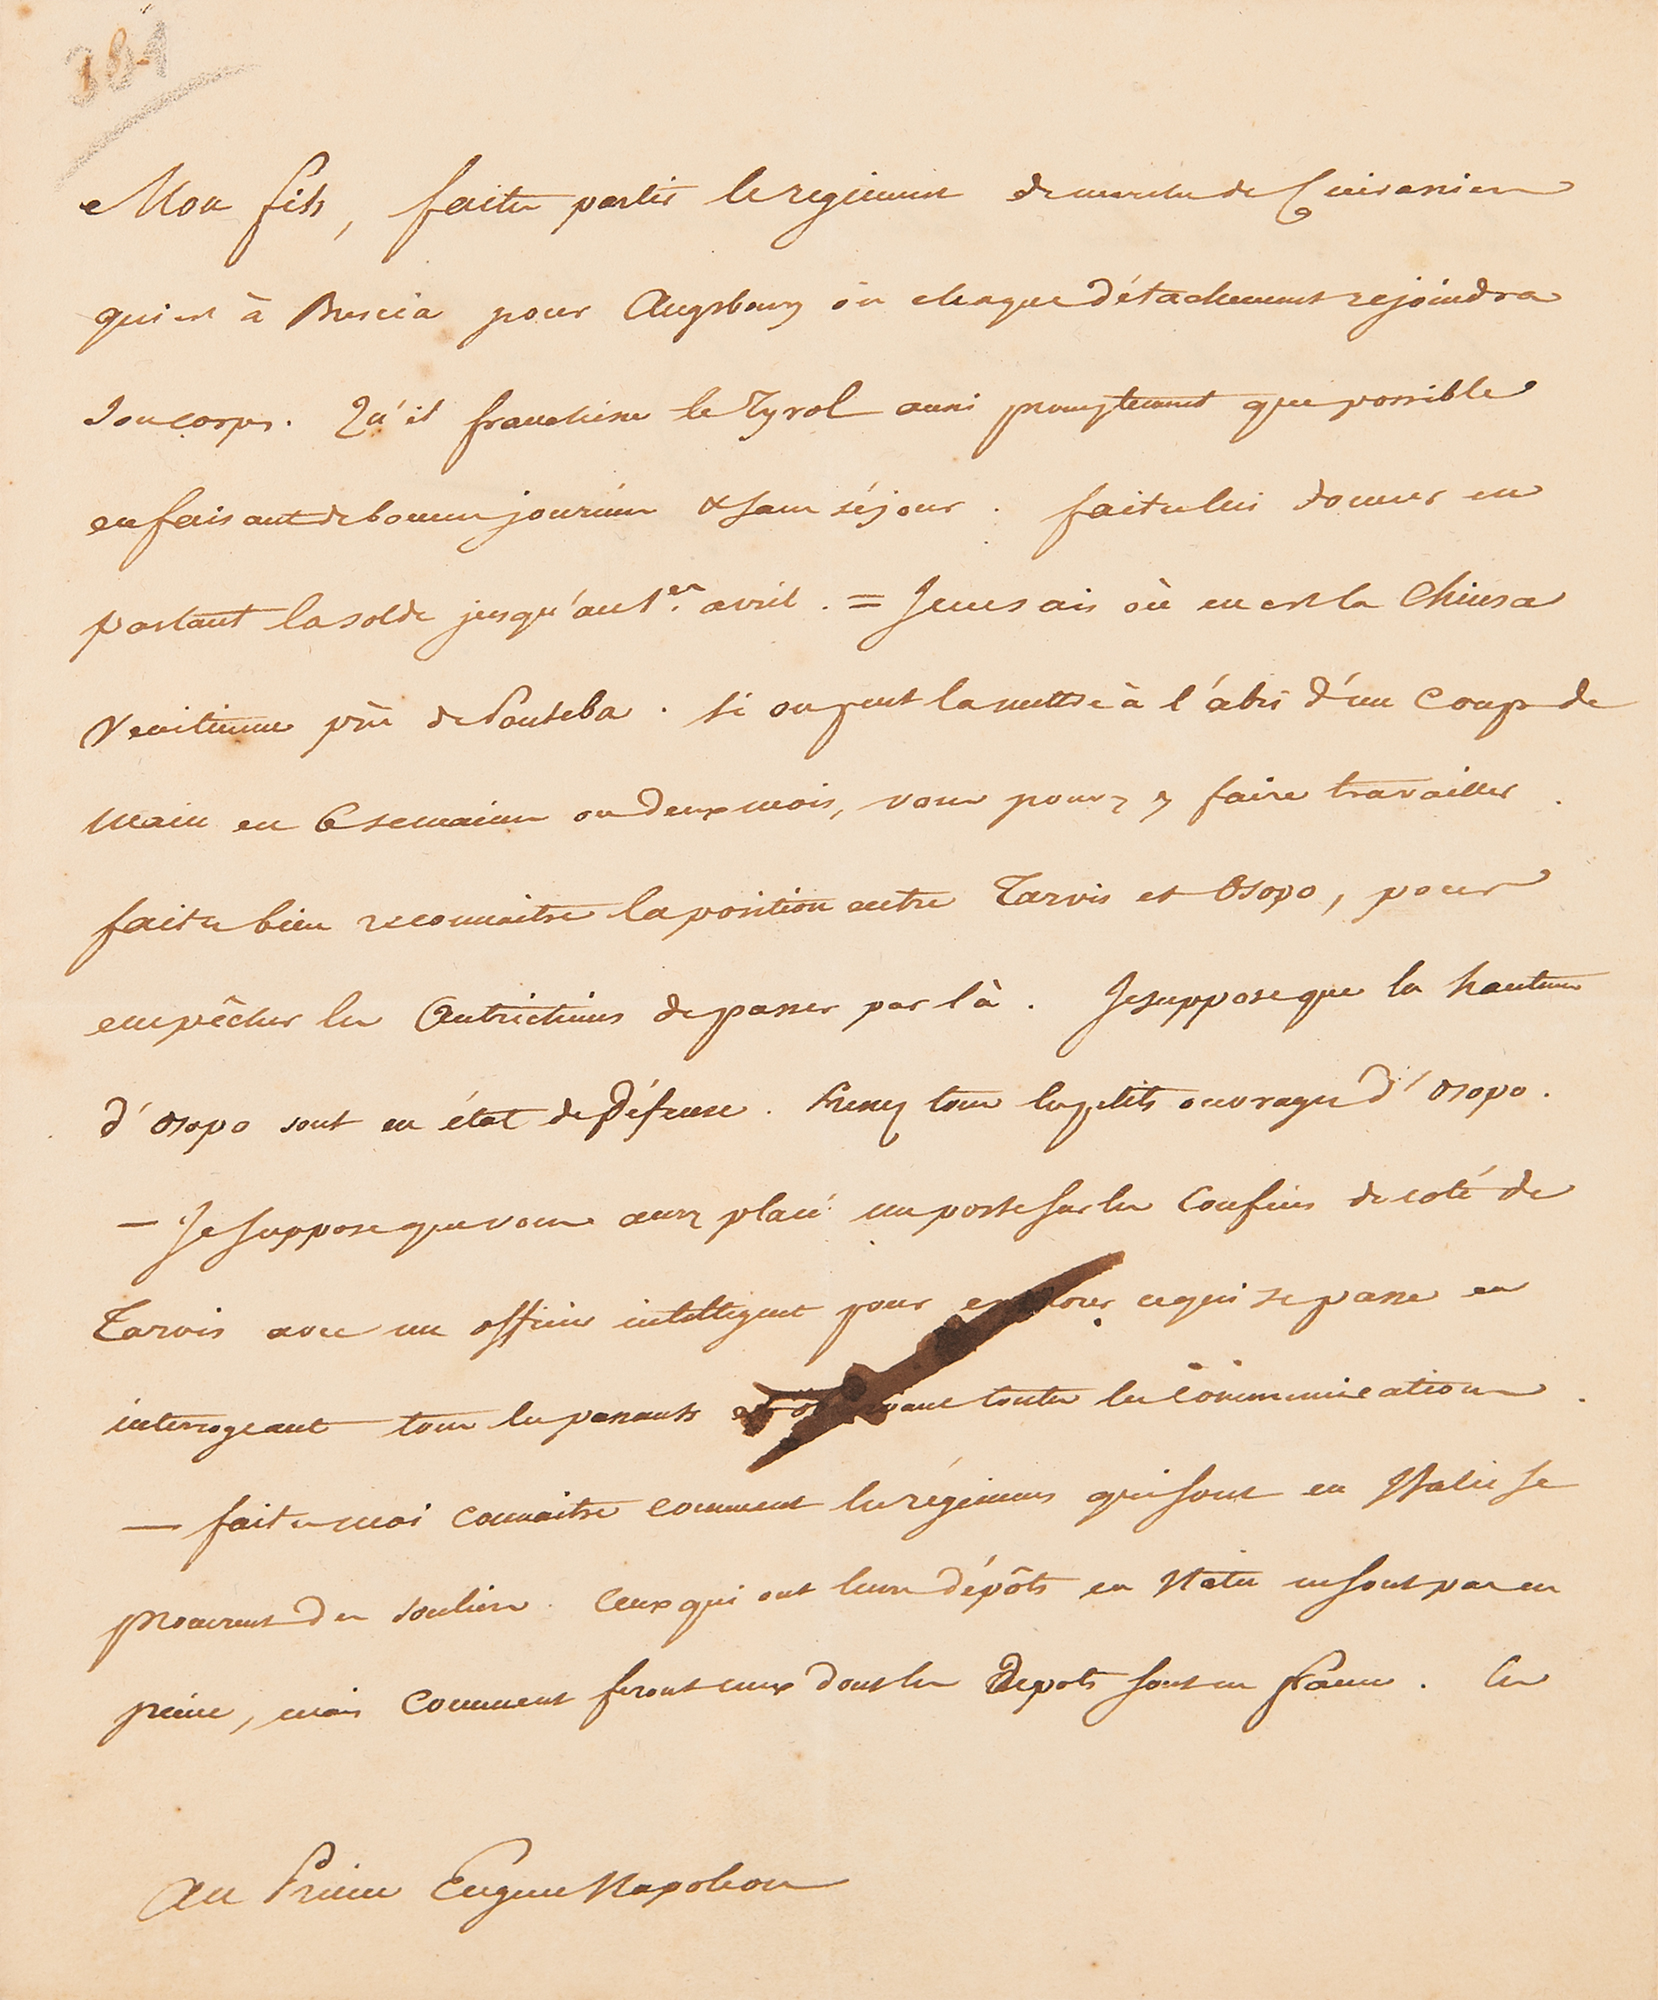 381
Mon fils, faites partir le régiment de marche de Cuirassiers
qui est à Brescia pour Augsbourg où chaque détachement rejoindra
son corps. Qu'il franchisse le Tyrol aussi promptement que possible
en faisant de bonnes journées & sans séjour. faites lui donner en
partant la solde jusqu'au 1er. avril. = Je ne sais où en est la Chiusa
Venitienne près de Ponteba. si on peut la mettre à l'abri d'un coup de
main en 6 semaines ou deux mois, vous pouvez y faire travailler.
faites bien reconnaitre la position entre Tarvis et Osopo, pour
empêcher les Autrichiens de passer par là. Je suppose que les hauteurs
d'Osopo sont en état de défense. Tenez tous les petits ouvrages d'Osopo.
— Je suppose que vous aurez placé un poste sur les confins de coté de
Tarvis avec un officier intelligent pour ce qui se passe en
interrogeant tous les passants et toutes les communications.
— faites moi connaitre comment les régimens qui sont en Italie se
procurent des souliers. Ceux qui ont leurs dépôts en Italie ne sont pas en
peine, mais comment feront ceux dont les depots sont en France. Les
Au Prince Eugene Napoleon